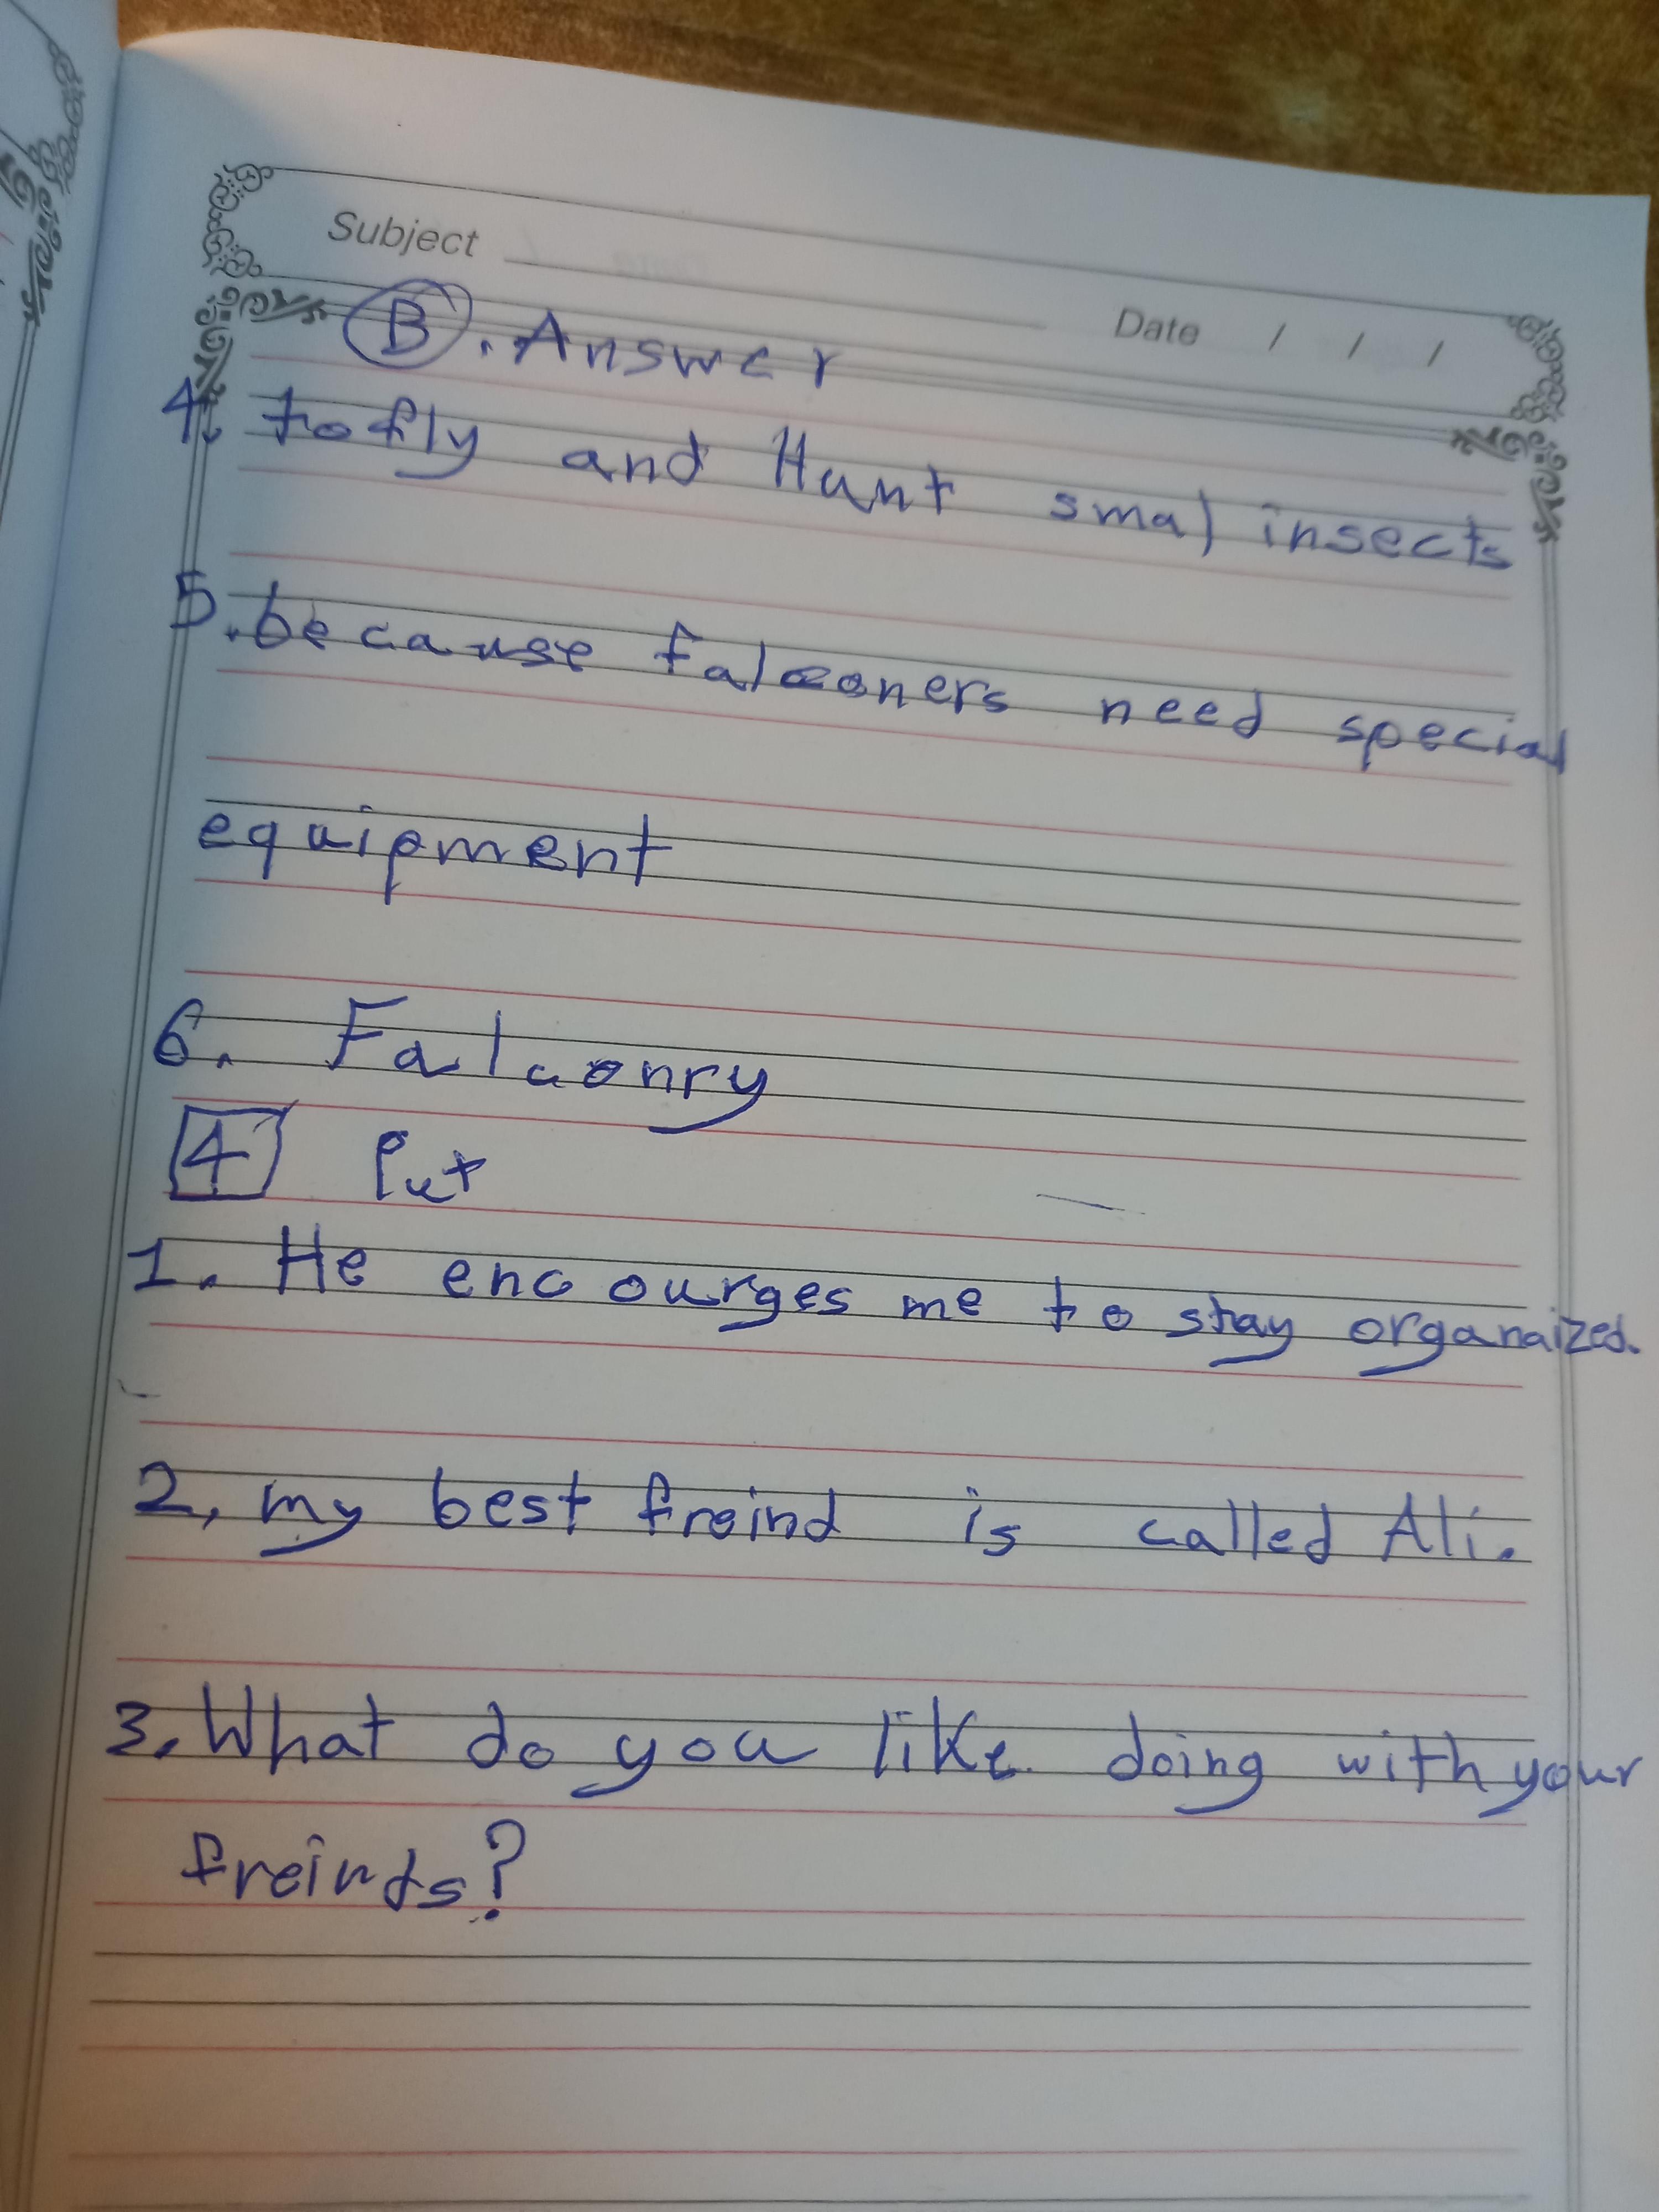 Subject
Date / / /
B. Answer
4. to fly and Hunt smal insects
5. because falconers need special
equipment
6. Falconry
4 Put
1. He encourges me to stay organaized.
2, my best freind is called Ali.
3. What do you like doing with your
freinds?